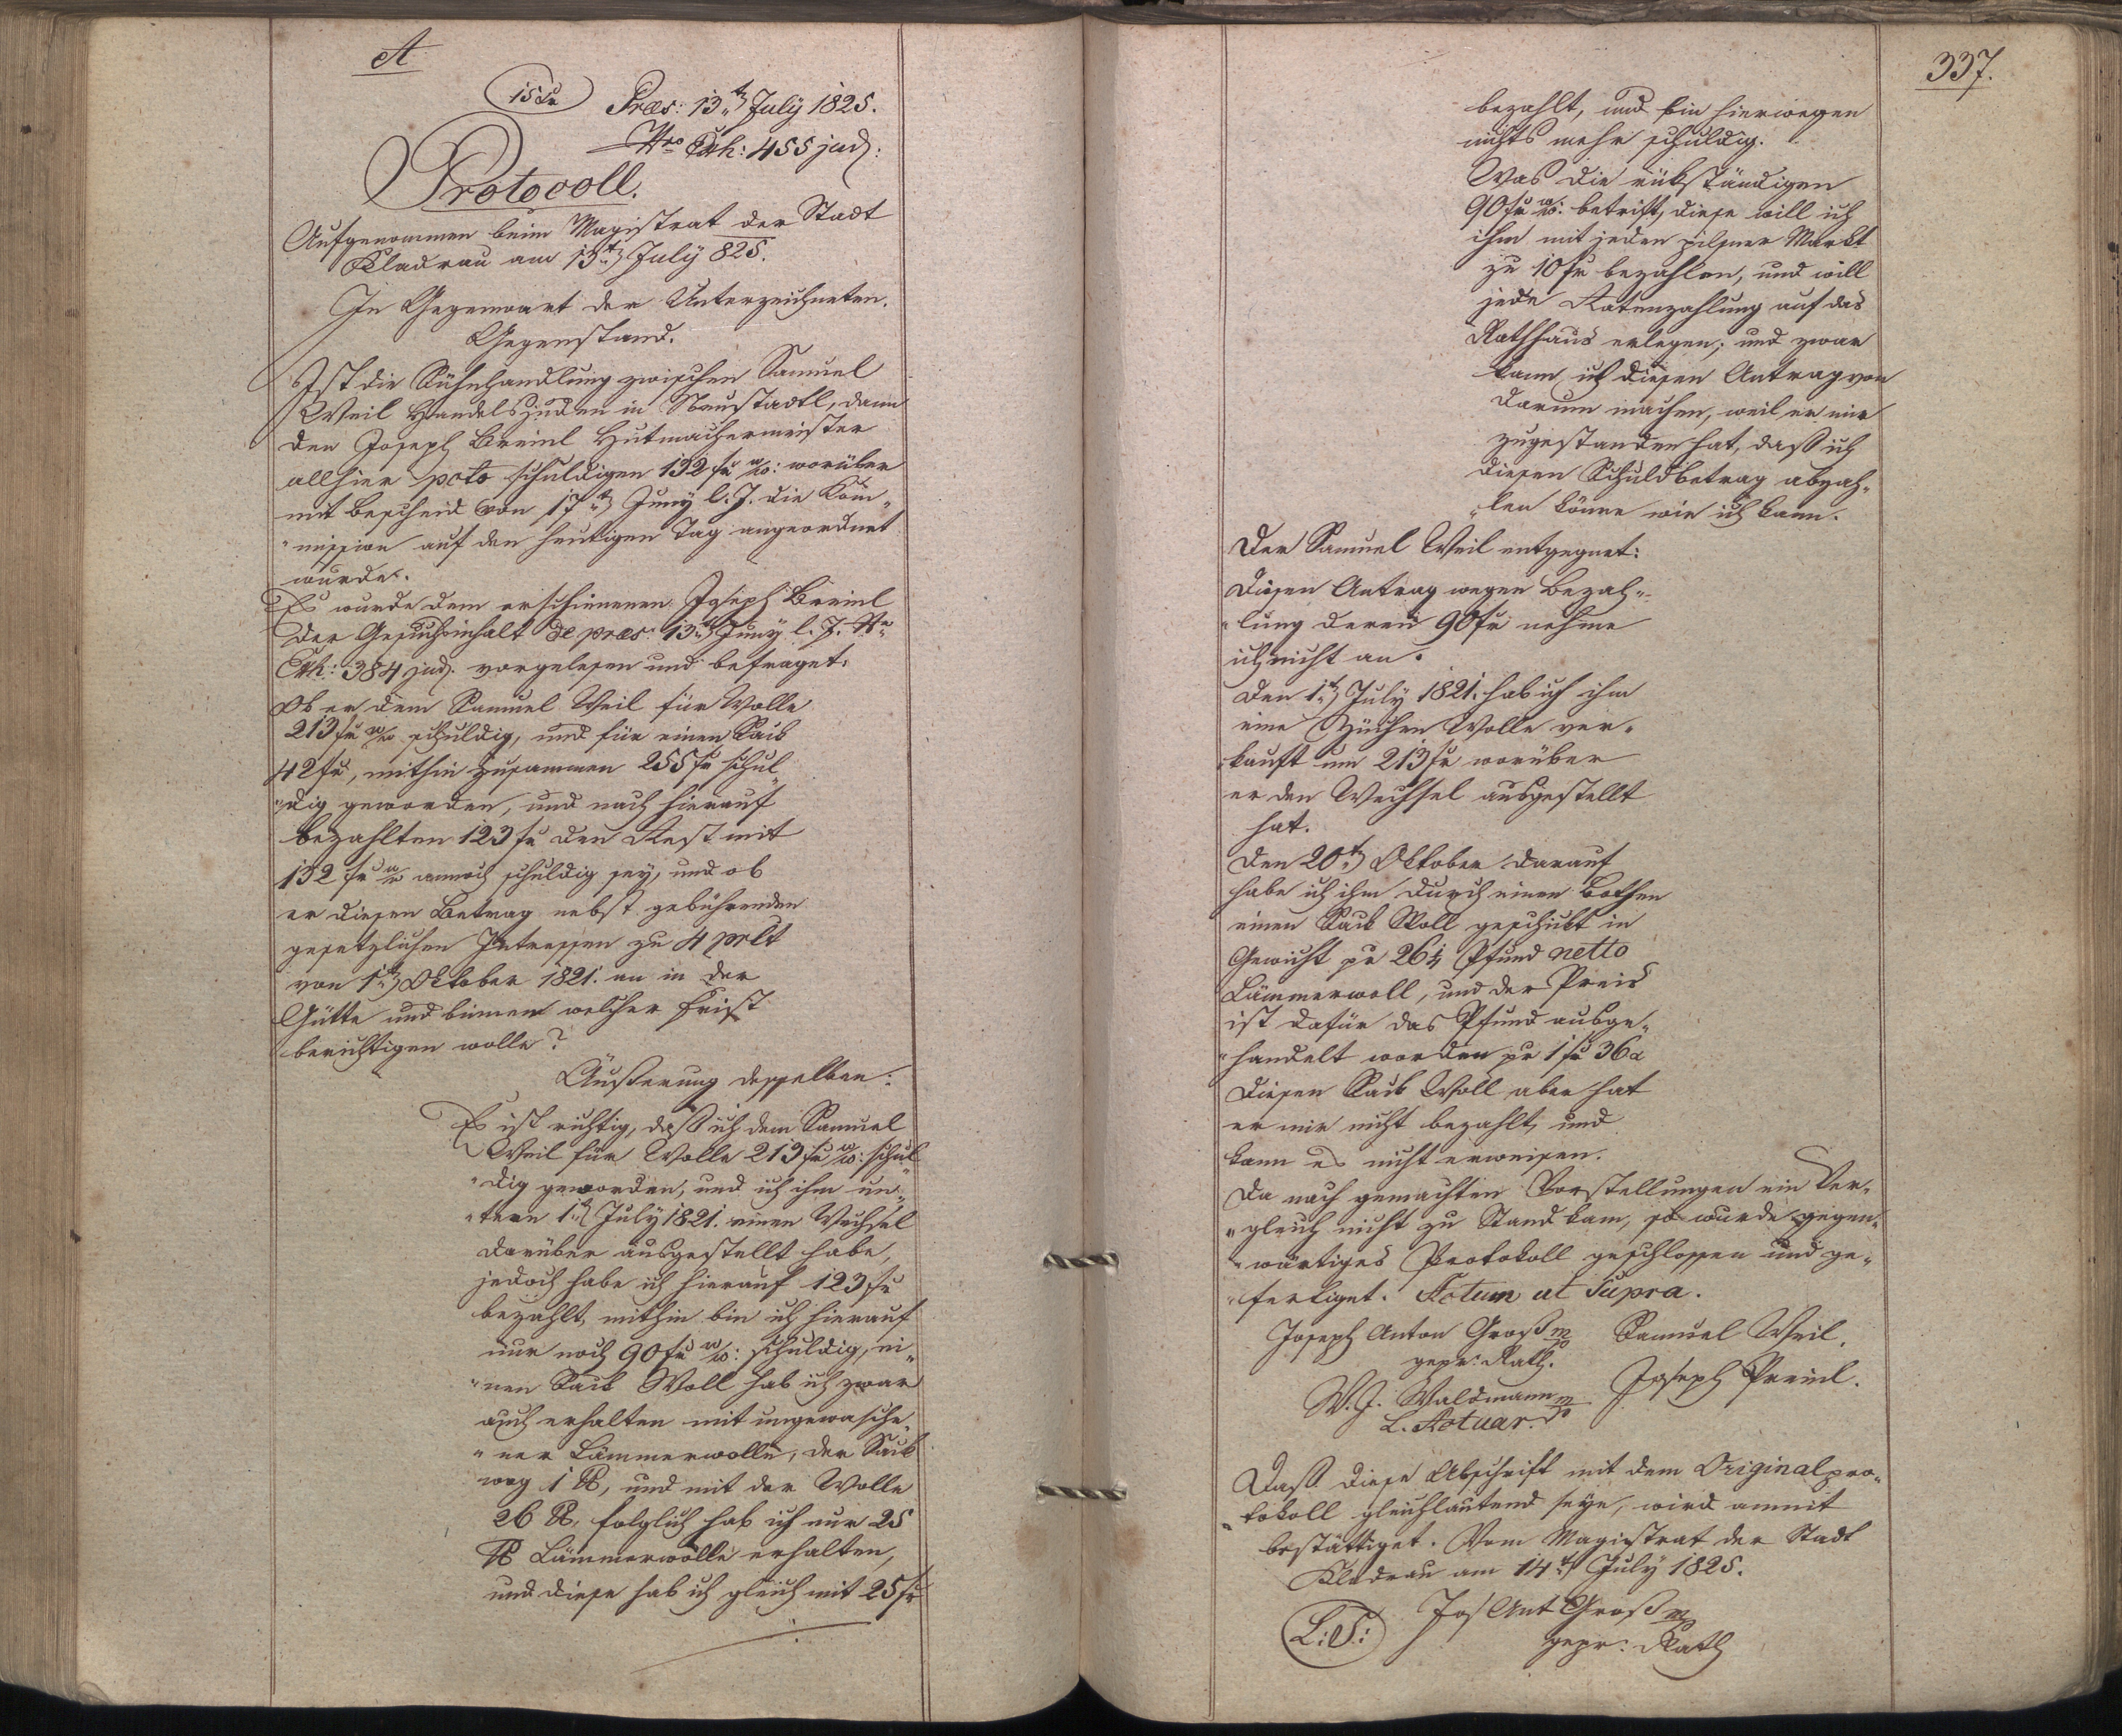 A
15 xr
Præs: 13ten July 1825.
Nro Exh: 455 jud:
Protocoll.
Aufgenommen beim Magistrat der Stadt
Kladrau am 13ten July 825.
In Gegenwart der Unterzeichneten.
Gegenstand.
Ist die Sühnhandlung zwischen Samuel
Weil Handelsjuden in Neustadtl, dann
den Joseph Breinl Hutmachermeister
allhier pcto schuldigen 132 fr W.W: worüber
mit Bescheid von 17ten Juny l. J. die Kom„
„mission auf den heutigen Tag angeordnet
wurde.
Es wurde dem erschienenen Joseph Breinl
der Gesuchsinhalt de præs: 13ten Juny l. J. Nro
Exh: 384 jud. vorgelesen und befraget:
Ob er dem Samuel Weil für Wolle
213 fr W.W schuldig, und für einen Sack
42 fr, mithin zusammen 255 fr schul„
„dig geworden, und nach hierauf
bezahlten 123 fr den Rest mit
132 fr W.W annoch schuldig sey, und ob
er diesen Betrag nebst gebührenden
gesetzlichen Intressen zu 4 prct
von 1ten Oktober 1821. an in der
Gütte und binnen welcher Frist
berichtigen wolle?
Äußerung desselben:
Es ist richtig, daß ich dem Samuel
Weil für Wolle 213 fr W.W: schul„
„dig geworden, und ich ihm un„
„term 1ten July 1821. einen Wechsel
darüber ausgestellt habe,
jedoch habe ich hierauf 123 fr
bezahlt, mithin bin ich hierauf
nur noch 90 fr W.W: schuldig, ei„
„nen Sack Woll hab ich zwar
auch erhalten mit ungewasche„
„ner Lämmerwolle, der Sack
wog 1 ℔, und mit der Wolle
26 ℔, folglich hab ich nur 25
℔ Lämmerwolle erhalten,
und diese hab ich gleich mit 25 fr
337.
bezahlt, und bin hierwegen
nichts mehr schuldig.
Was die rükständigen
90 fr W.W: betrift, diese will ich
ihm mit jeden pilsner Markt
zu 10 fr bezahlen, und will
jede Ratenzahlung auf das
Rathhaus erlegen; und zwar
kann ich diesen Antrag von
darum machen, weil er mir
zugestanden hat, daß ich
diesen Schuldbetrag abzah„
„len könne wie ich kann.
Der Samuel Weil entgegnet:
Diesen Antrag wegen Bezah„
„lung deren 90 fr nehme
ich nicht an.
Den 1ten July 1821. hab ich ihm
eine Wolle ver„
kauft um 213 fr worüber
er den Wechsel ausgestellt
hat.
Den 20ten Oktober darauf
habe ich ihm durch einen Bothen
einen Sack Woll geschickt in
Gewicht pr 26¼ Pfund netto
Lämmerwoll, und der Preis
ist dafür das Pfund ausge„
„handelt worden pr 1 fr 36 x
Diesen Sack Woll aber hat
er mir nicht bezahlt, und
kann es nicht erweisen.
Da nach gemachten Vorstellungen ein Ver„
„gleich nicht zu Stand kam, so wurde gegen„
„wärtiges Protokoll geschlossen und ge„
„fertiget. Actum ut supra.
Joseph Anton Groß mp Samuel Weil.
gepr: Rath. Joseph Preinl.
W. J. Waldmann mp
L. Actuar.
Daß diese Abschrift mit dem Originalpro„
„tokoll gleichlautend seye, wird anmit
bestättiget. Vom Magistrat der Stadt
Kladrau am 14ten July 1825.
L: S: Jos Ant Groß mp
gepr: Rath